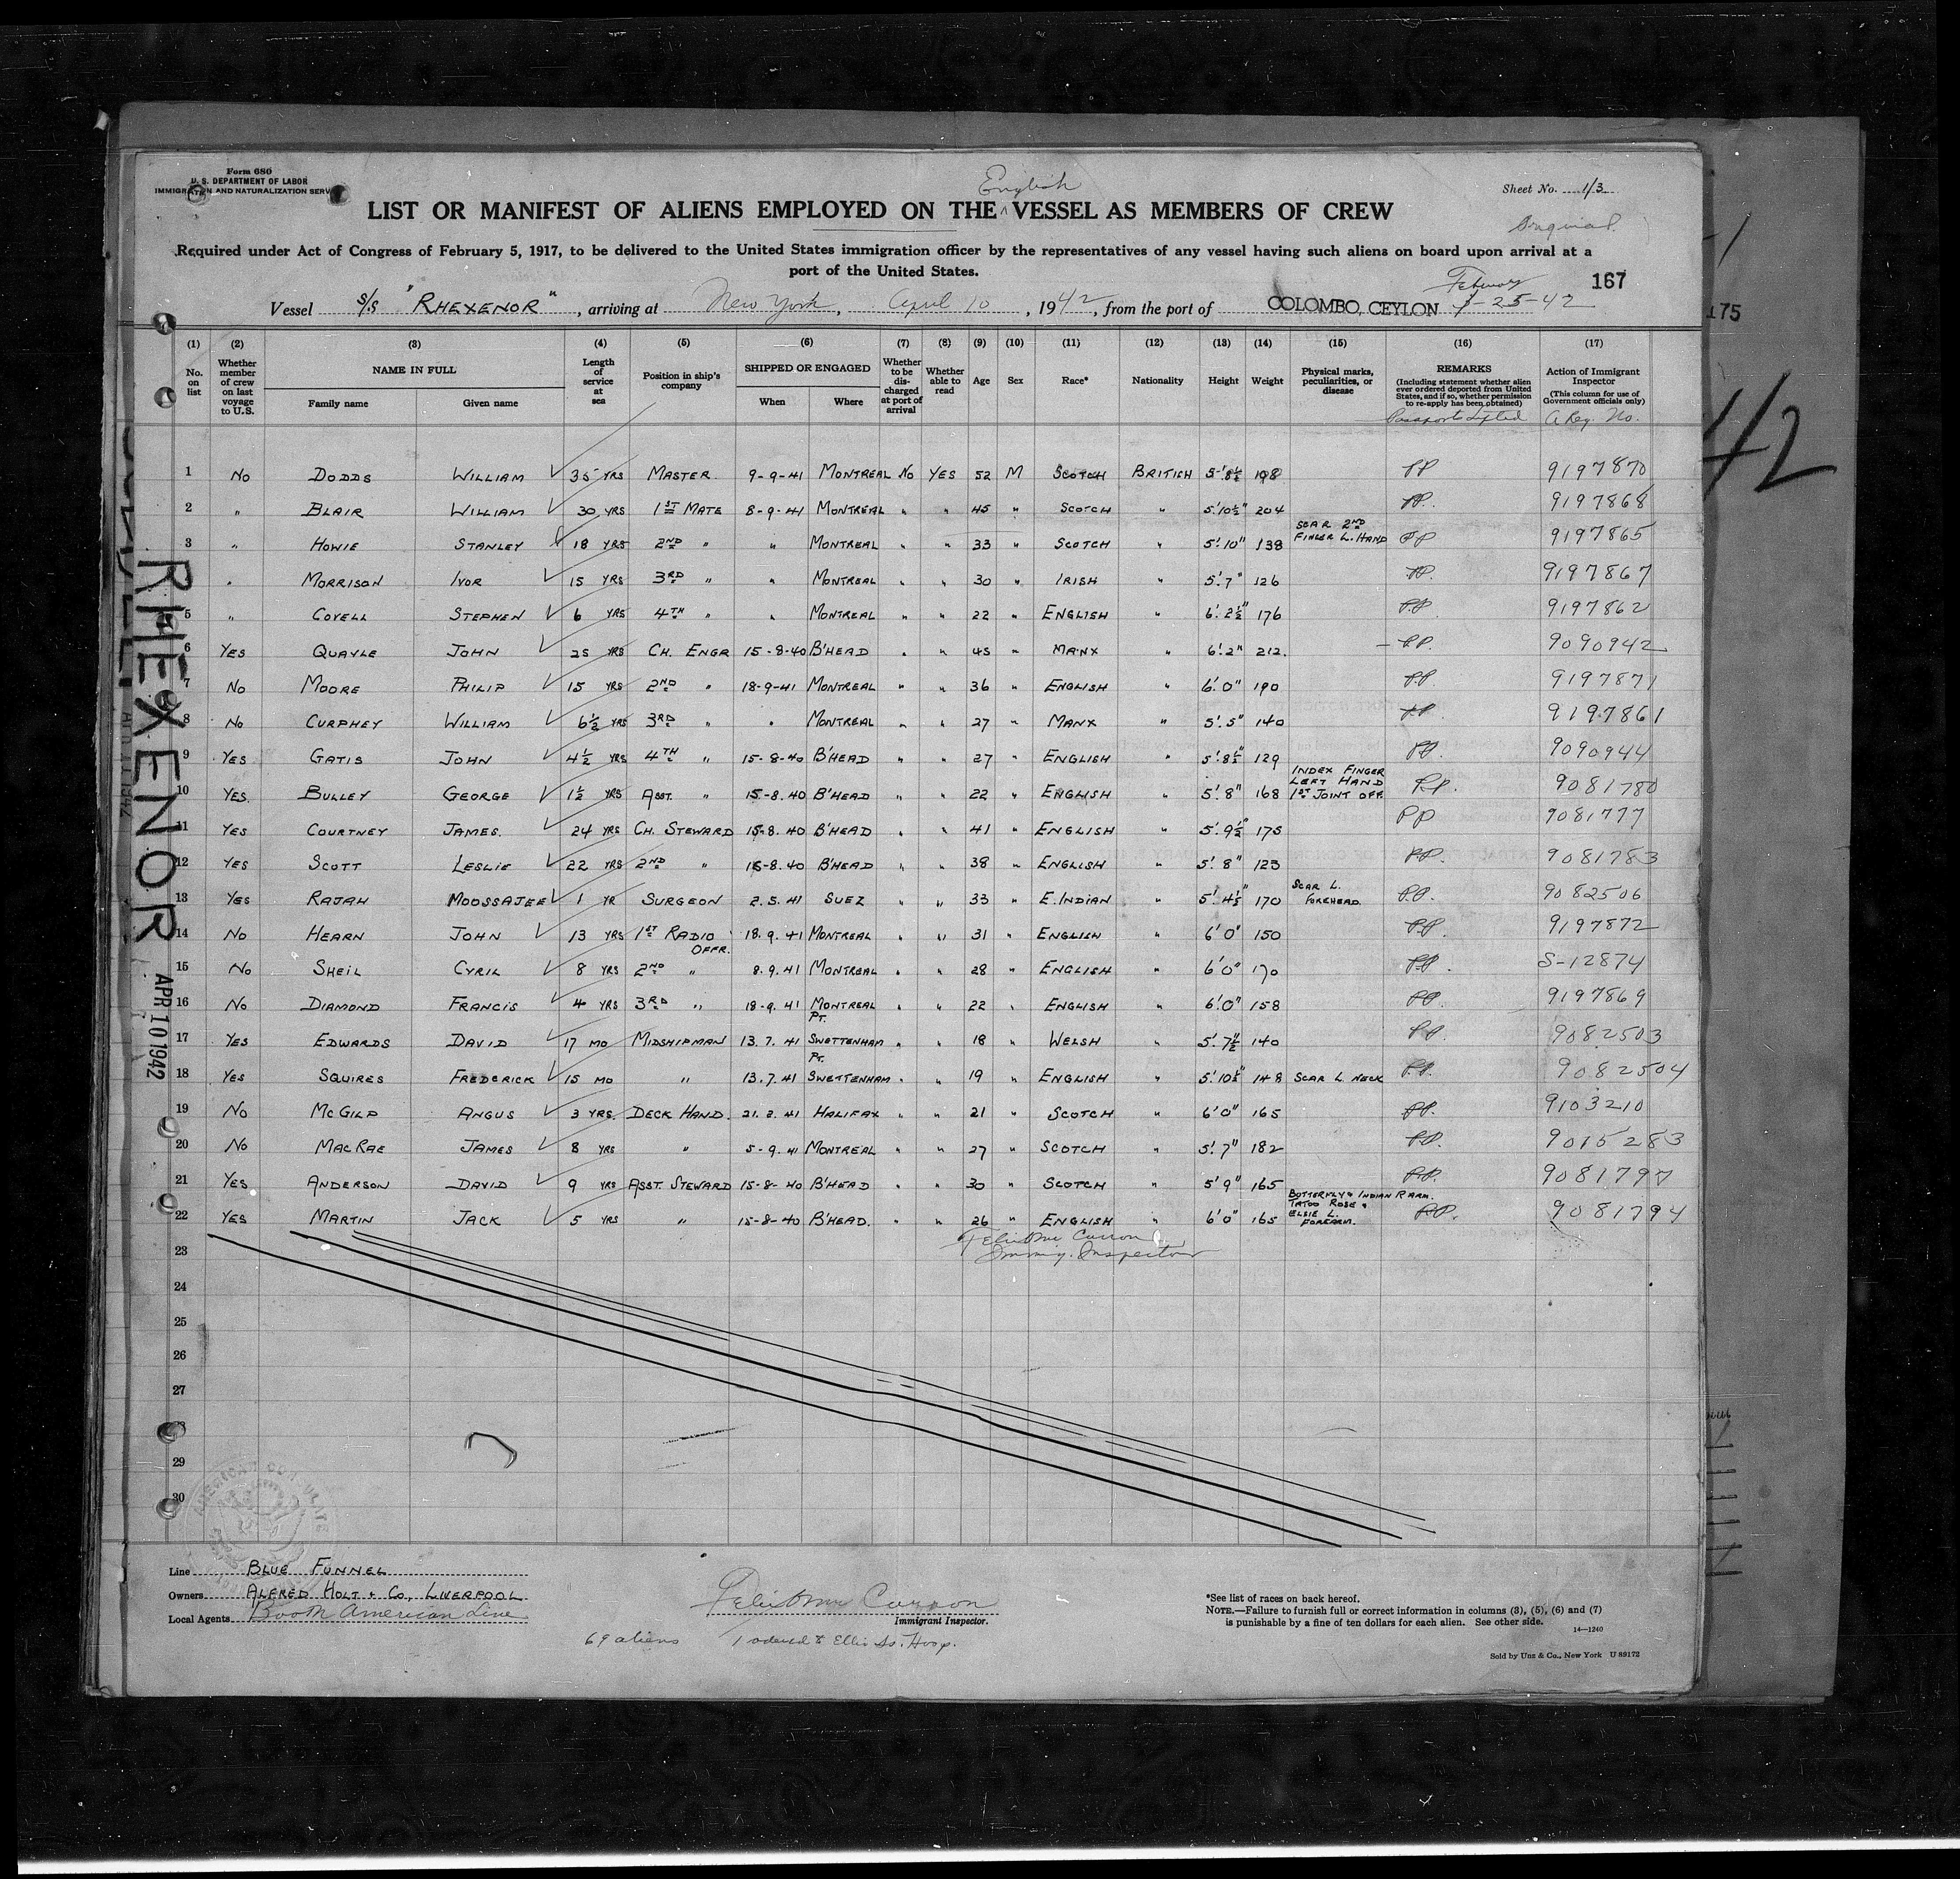 Form 680
U. S. DEPARTMENT OF LABOR
IMMIGRATION AND NATURALIZATION SERV
Sheet No. 1/3
English
LIST OR MANIFEST OF ALIENS EMPLOYED ON THE ^ VESSEL AS MEMBERS OF CREW
Original
Required under Act of Congress of February 5, 1917, to be delivered to the United States immigration officer by the representatives of any vessel having such aliens on board upon arrival at a
port of the United States.
167
Vessel S/S "RHEXENOR", arriving at New York, April 10, 1942, from the port of COLOMBO, CEYLON -25-42
175
42
(1) (2) (3) (4) (5) (6) (7) (8) (9) (10) (11) (12) (13) (14) (15) (16) (17)
No. on list
Whether member of crew on last voyage to U.S.
NAME IN FULL
Family name Given name
Length of service at sea
Position in ship's company
SHIPPED OR ENGAGED
When Where
Whether to be discharged at port of arrival
Whether able to read
Age Sex Race* Nationality Height Weight
Physical marks, peculiarities, or disease
REMARKS
(Including statement whether alien ever ordered deported from United States, and if so, whether permission to re-apply has been obtained)
Passports Lifted
Action of Immigrant Inspector
(This column for use of Government officials only)
A Reg. No.
1 No DODDS WILLIAM 35 YRS MASTER 9-9-41 MONTREAL No YES 52 M SCOTCH BRITISH 5'8½ 198 PP 9197870
2 " BLAIR WILLIAM 30 YRS 1ST MATE 8-9-41 MONTREAL " " 45 " SCOTCH " 5'10½" 204 PP. 9197868
3 " HOWIE STANLEY 18 YRS 2ND " " MONTREAL " " 33 " SCOTCH " 5'.10" 138 SCAR 2ND FINGER L. HAND PP 9197865
" MORRISON IVOR 15 YRS 3RD " " MONTREAL " " 30 " IRISH " 5'.7" 126 PP. 9197867
5 " COVELL STEPHEN 6 YRS 4TH " " MONTREAL " " 22 " ENGLISH " 6'.2½" 176 PP 9197862
6 YES QUAYLE JOHN 25 YRS CH. ENGR 15-8-40 B'HEAD " " 45 " MANX " 6'.2" 212. PP. 9090942
7 No MOORE PHILIP 15 YRS 2ND " 18-9-41 MONTREAL " " 36 " ENGLISH " 6'.0" 190 PP 9197871
8 No CURPHEY WILLIAM 6½ YRS 3RD " " MONTREAL " " 27 " MANX " 5'.5" 140 PP. 9197861
9 YES GATIS JOHN 4½ YRS 4TH " 15-8-40 B'HEAD " " 27 " ENGLISH " 5'.8½" 129 PP 9090944
10 YES. BULLEY GEORGE 1½ YRS ASST. " 15-8.40 B'HEAD " " 22 " ENGLISH " 5'.8" 168 INDEX FINGER LEFT HAND 1ST JOINT OFF. PP. 9081780
11 YES COURTNEY JAMES. 24 YRS CH. STEWARD 15-8.40 B'HEAD " " 41 " ENGLISH " 5'.9½" 175 PP 9081777
12 YES SCOTT LESLIE 22 YRS 2ND " 15-8.40 B'HEAD " " 38 " ENGLISH " 5'.8" 123 PP. 9081783
13 YES RAJAH MOOSSAJEE 1 YR SURGEON 2.5.41 SUEZ " " 33 " E.INDIAN " 5'.4½" 170 SCAR L. FOREHEAD. PP. 9082506
14 No HEARN JOHN 13 YRS 1ST RADIO OFFR. 18.9.41 MONTREAL " " 31 " ENGLISH " 6'0" 150 PP. 9197872
15 No SHEIL CYRIL 8 YRS 2ND " 8.9.41 MONTREAL " " 28 " ENGLISH " 6'0" 170 PP. S-12874
16 No DIAMOND FRANCIS 4 YRS 3RD " 18-9.41 MONTREAL " " 22 " ENGLISH " 6'.0" 158 PP. 9197869
17 YES EDWARDS DAVID 17 MO MIDSHIPMAN 13.7.41 PT. SWETTENHAM " " 18 " WELSH " 5'.7½" 140 PP. 9082503
18 YES SQUIRES FREDERICK 15 MO " 13.7.41 PT. SWETTENHAM " " 19 " ENGLISH " 5'.10½" 148 SCAR L. NECK PP. 9082504
19 No MCGILP ANGUS 3 YRS. DECK HAND. 21.2.41 HALIFAX " " 21 " SCOTCH " 6'0" 165 PP. 9103210
20 No MACRAE JAMES 8 YRS " 5-9.41 MONTREAL " " 27 " SCOTCH " 5'.7" 182 PP. 9015283
21 YES ANDERSON DAVID 9 YRS ASST. STEWARD 15-8-40 B'HEAD " " 30 " SCOTCH " 5'9" 165 PP. 9081797
22 YES MARTIN JACK 5 YRS " 15-8-40 B'HEAD. " " 26 " ENGLISH " 6'0" 165 BUTTERFLY & INDIAN R ARM. TATOO ROSE & ELSIE L. FOREARM. PP. 9081794
Immig. Inspector
23
24
25
26
27
29
30
RHEXENOR
APR 10 1942
Line BLUE FUNNEL
Owners ALFRED HOLT & Co, LIVERPOOL
Local Agents Booth American Line
Immigrant Inspector.
69 aliens 1 odered to Ellis Is. Hosp.
*See list of races on back hereof.
NOTE.—Failure to furnish full or correct information in columns (3), (5), (6) and (7)
is punishable by a fine of ten dollars for each alien. See other side.
14—1240
Sold by Unz & Co., New York U 89172